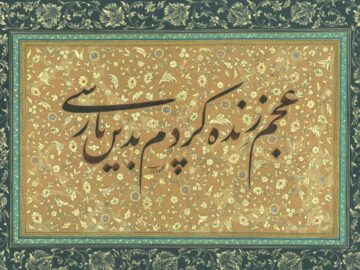 عجم زنده کردم بدین پارسی